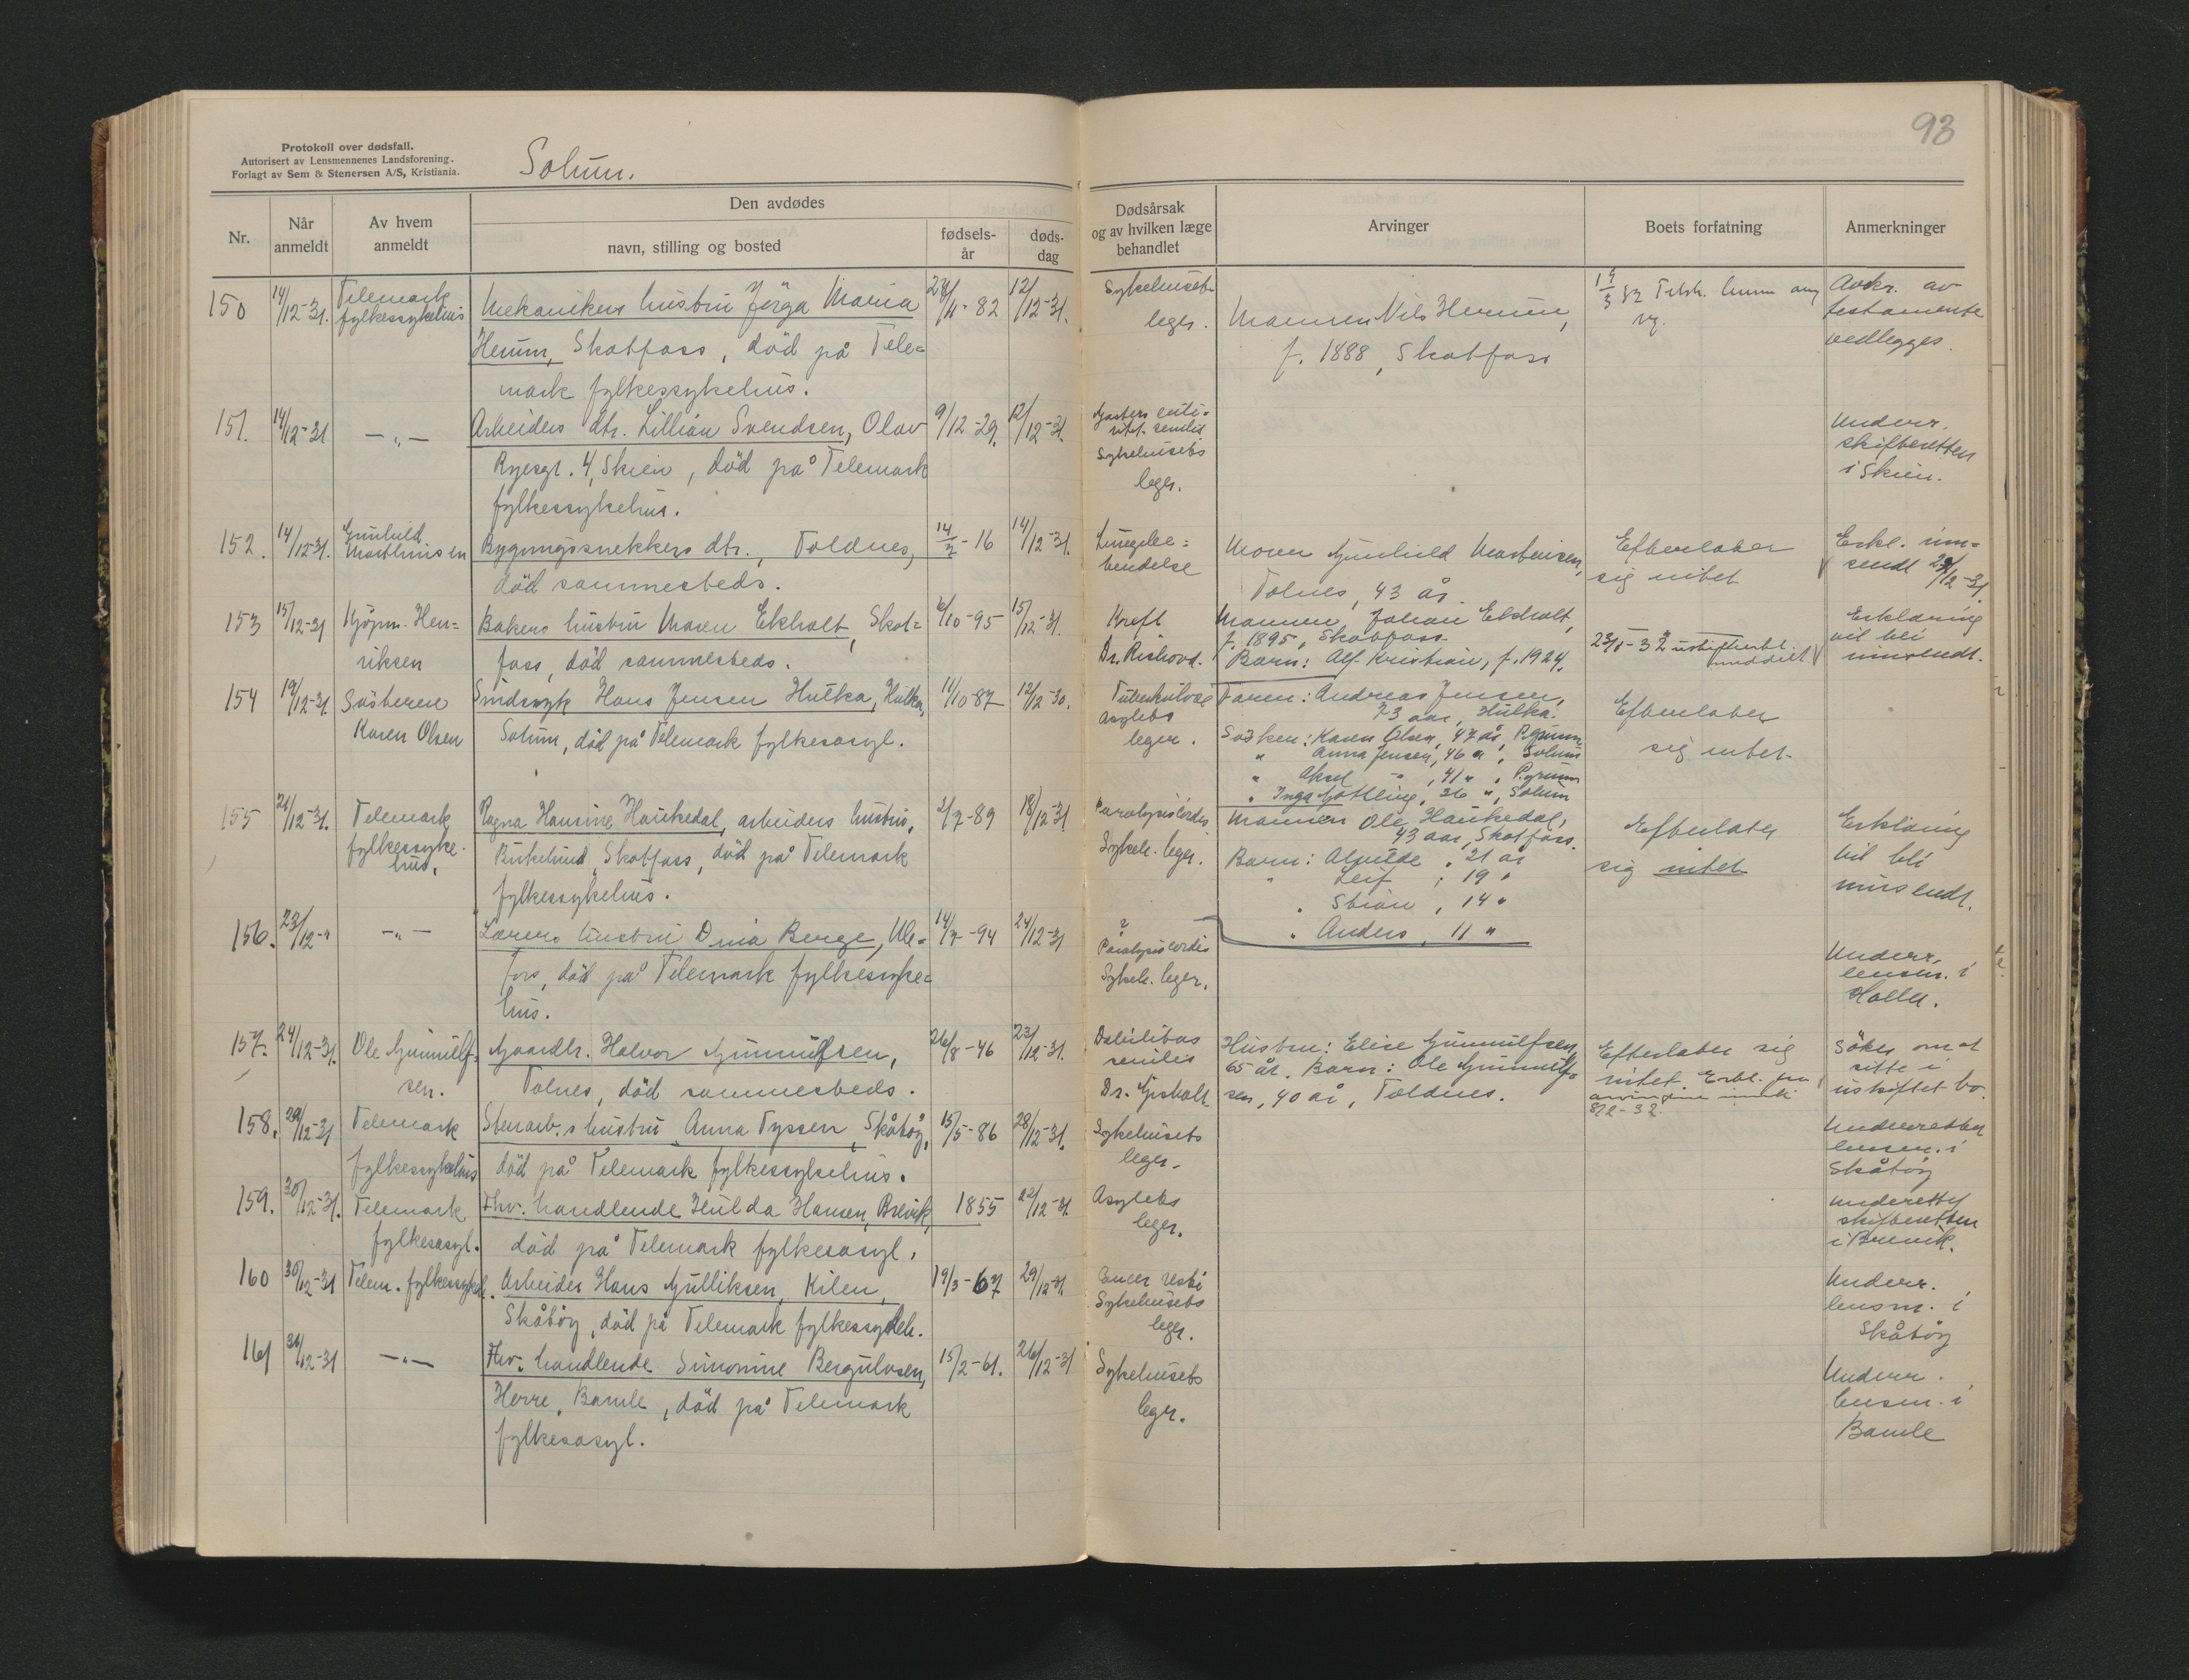 Protokoll over dødsfall.
Autorisert av Lensmennenes Landsforening.
Forlagt av Sem & Stenersen A/S, Kristiania.
Solum.
93
Nr.
Når anmeldt
Av hvem anmeldt
Den avdødes
navn, stilling og bosted
fødselsår
dødsdag
Dødsårsak og av hvilken læge behandlet
Arvinger
Boets forfatning
Anmerkninger
150 14/12-31. Telemark fylkessykehus
Mekanikers hustru Jørga Maria
Herum, Skotfoss, död på Tele=
mark fylkessykehus.
12/12-31.
Sykehusets
leger.
Mannen Nils Herum,
f. 1888, Skotfoss
Avskr. av
testamente
vedlegges.
151. 14/12-31 —„—
Arbeiders dtr. Lillian Svendsen, Olav
Ryesgt. 4, Skien, död på Telemark
fylkessykehus.
9/12-29. 12/12-31.
Sykehusets
leger.
Underr.
skifteretten
i Skien.
152. 14/12-31. Gunhild
Marthinisen
Bygningssnekkers dtr., Toldnes,
död sammesteds.
14/7-16 14/12-31.
Lungebe=
tendelse
Moren Gunhild Martinisen,
Tolnes, 43 år.
Efterlater
sig intet
Erkl. inn=
sendt
153 15/12-31 Kjöpm. Hen=
riksen
Bakers hustru Maren Ekholt, Skot=
foss, död sammesteds.
6/10-95 15/12-31.
Kreft
Dr. Rishovd.
Mannen Johan Ekholt,
f. 1895, Skotfoss.
Barn: Alf Kristian, f. 1924.
Erklæring
vil bli
innsendt.
154 19/12-31. Søsteren
Karen Olsen
Sindssyk Hans Jensen Hulka, Hulka,
Solum, död på Telemark fylkesasyl.
11/10-87 12/12-30.
Tuberkulose
asylets
leger.
Faren: Andreas Jensen,
73 aar, Hulka.
Søsken: Karen Olsen, 47 år, P.grunn
„ Anna Jensen, 46 „, Solum
„ Aksel „, 41 „, P.grunn
„ Inga Gotling, 36 „, Solum
Efterlater
sig intet.
155 21/12-31. Telemark
fylkessyke-
hus.
Ragna Hansine Haukedal, arbeiders hustru,
Birkelund, Skotfoss, död på Telemark
fylkessykehus.
2/7-89 18/12-31
Paralysis cordis
Sykeh. leger.
Mannen Ole Haukedal,
43 aar, Skotfoss.
Barn: Alvilde, 21 år
„ Leif, 19 „
„ Stian, 14 „
„ Anders, 11 „
Efterlater
sig intet
Erklæring
vil bli
innsendt.
156. 23/12-„ —„—
Lærers hustru Dina Berge, Ule=
foss, död på Telemark fylkessyke=
hus.
14/7-94 24/12-31
?
Paralysis cordis
Sykeh. leger.
Underr.
lensm. i
Holla.
157. 24/12-31. Ole Gunnulf-
sen.
Gaardbr. Halvor Gunnulfsen,
Tolnes, död sammesteds.
26/8-46 23/12-31.
Debilitas
senilis
Dr. Gjsholt
Hustru: Elise Gunnulfsen,
65 år. Barn: Ole Gunnulf-
sen, 40 år, Toldnes.
Efterlater sig
intet. Erkl. fra
8/2-32.
Söker om at
sitte i
uskiftet bo.
158. 29/12-31 Telemark
fylkessykehus
Stenarb.s hustru Anna Tyssen, Skåtöy,
död på Telemark fylkessykehus.
15/5-86 28/12-31.
Sykehusets
leger.
Underretter
lensm. i
Skåtöy
159. 30/12-31. Telemark
fylkesasyl.
Fhv. handlende Hulda Hansen, Brevik,
död på Telemark fylkesasyl.
1855 22/12-31.
Asylets
leger.
Underrettet
skifteretten
i Brevik.
160 30/12-31 Telem. fylkessykeh.
Arbeider Hans Gulliksen, Kilen,
Skåtöy, död på Telemark fylkessykeh.
19/3-67 29/12-31.
Sykehusets
leger.
Underr.
lensm. i
Skåtöy
161 /12-31 —„—
Fhv. handlende Simonine Bergulvsen,
Herre, Bamle, död på Telemark
fylkesasyl.
15/2-61. 26/12-31
Sykehusets
leger.
Underr.
lensm. i
Bamle